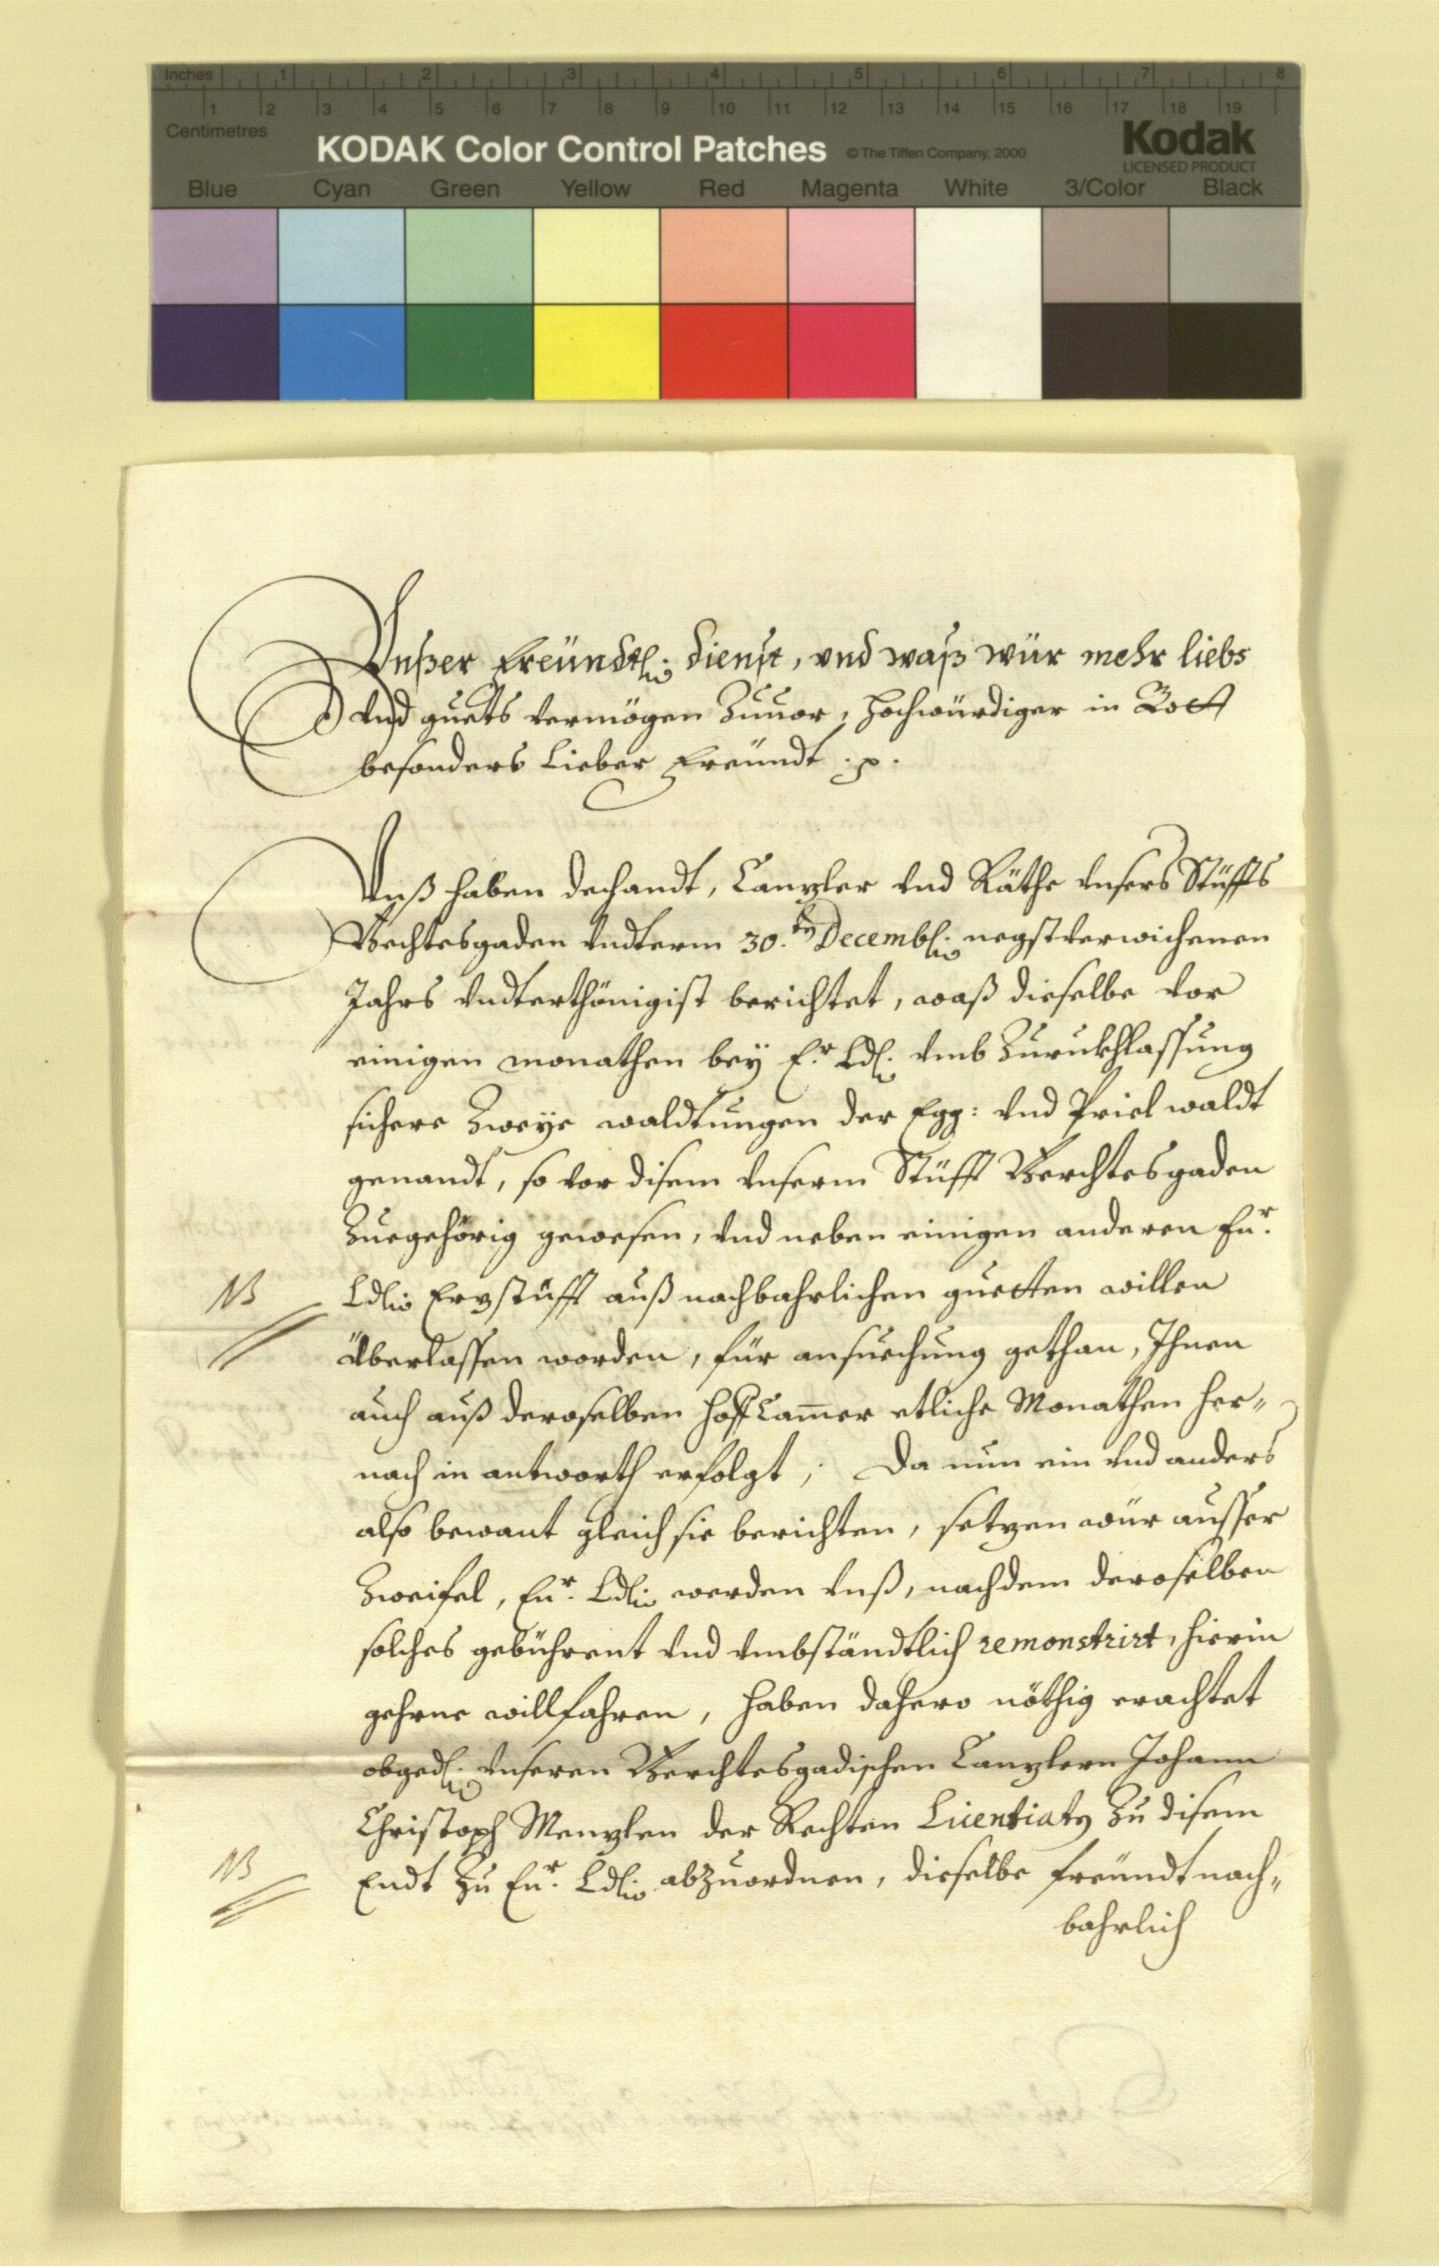 Inches 1 2 3 4 5 6 7 8
1 2 3 4 5 6 7 8 9 10 11 12 13 14 15 16 17 18 19
Centimetres
KODAK Color Control Patches © The Tiffen Company, 2000 Kodak
LICENSED PRODUCT
Blue Cyan Green Yellow Red Magenta White 3/Color Black
Vnßer Freündtl: dienst, vnd waß wür mehr liebs
vnd guets vermögen Zuuor, Hochwürdiger in Gott
besonders Lieber Freündt .p.
Vnß haben dechandt, Canzler vnd Räthe vnsers Stüffts
Berchtesgaden vndterm 30.ten Decembl: negstverwichenen
Jahrs vndterthönigist berichtet, waß dieselbe vor
einigen monathen bey E.r Ldl: vmb Zurukhlassung
sichere Zweye waldtungen der Egg: vnd Priel waldt
genandt, so vor disem vnserm Stüfft Berchtesgaden
Zuegehörig gewesen, vnd neben einigen anderen Eu.r
NB Ldl: Erzstüfft auß nachbahrlichen guetten willen
überlassen worden, für ansuechung gethan, Ihnen
auch auß deroselben HoffCammer etliche Monathen her=
nach in antworth erfolgt; Da nun ein vnd anders
also bewant gleich sie berichten, setzen wür ausser
Zweifel, Eu.r Ldl: werden vnß, nachdem deroselben
solches gebührent vnd vmbständtlich remonstrirt, hierin
gehrne willfahren, haben dahero nöthig erachtet
obgedl: vnseren Berchtesgadischen Canzlern Johann
Christoph Menzlen der Rechten Licentiaty Zu disem
NB Endt Zu Eu.r Ldl: abzuordnen, dieselbe freündtnach=
bahrlich